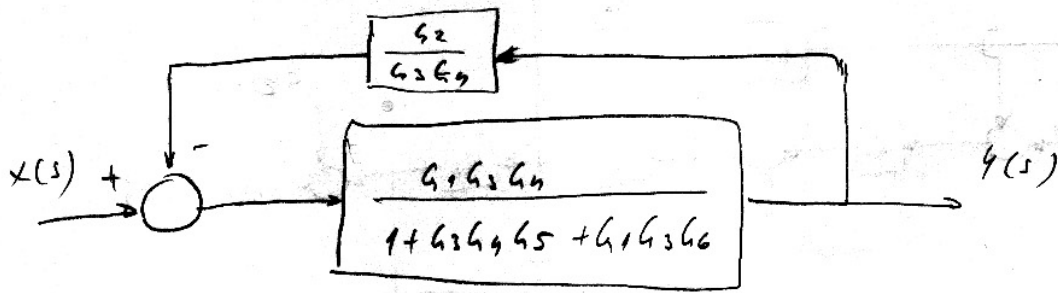 G2
G3G4
X(s) +
-
G1G3G4
1+G3G4G5+G1G3G6
Y(s)